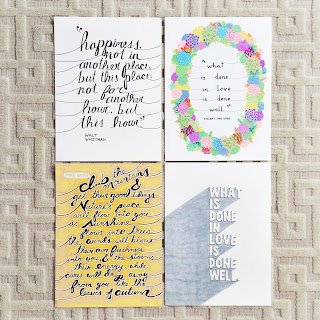 "happiness,
not in
another place
but this place,
not for
another
hour, but
this hour"
WALT
WHITMAN
"what
is done
in love
is done
well."
VINCENT VAN GOGH
climb the
mountains &
get their good tidings
Nature's peace
will flow into you
as sunshine
flows into trees
the winds will blow
their own freshness
into you & the storms
their energy while
cares will drop away
from you like the
leaves of autumn
WHAT
IS
DONE
IN
LOVE
IS
DONE
WELL